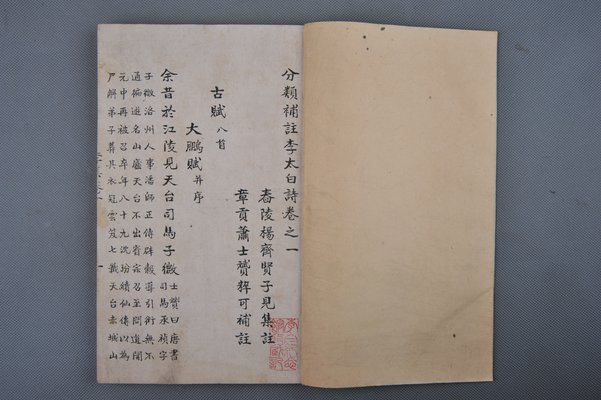 分類補註李太白詩卷之一
舂陵楊齊賢子見集註
章貢蕭士贇粹可補註
古賦八首
大鵬賦并序
余昔於江陵見天台司馬子微士贇曰唐書司馬承禎字
子微洛州人事潘師正傳辟穀導引術無不
通徧遊名山廬天台不出睿宗召至問道開
元中再被召卒年八十九沈玢續仙傳以為
尸解弟子葬其衣冠雲笈七籤天台赤城山